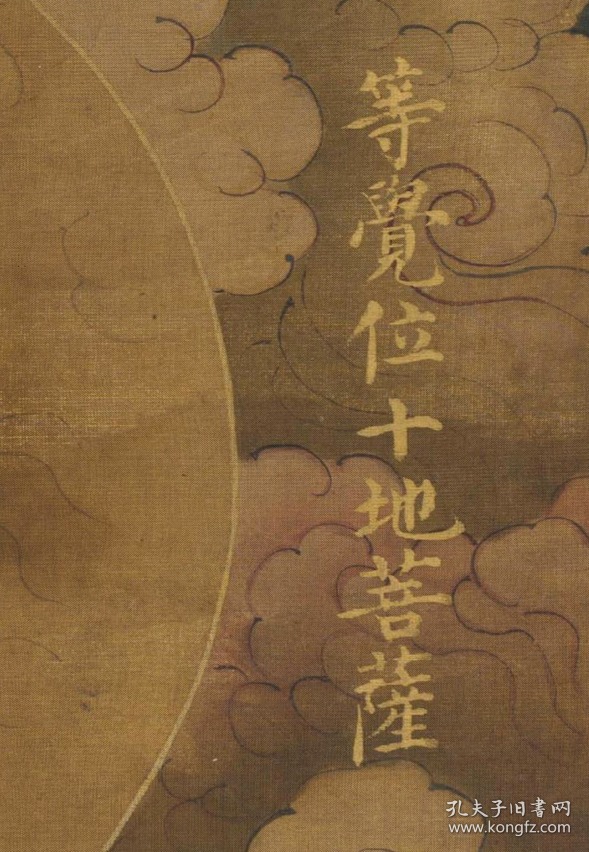 等覺位十地菩薩
孔夫子旧書网
www.kongfz.com